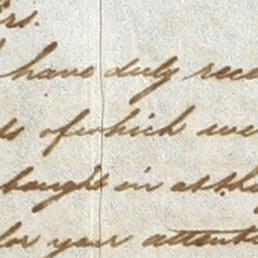 rs.
I have duly rece
ts of which we
bought in at th
for your attenti